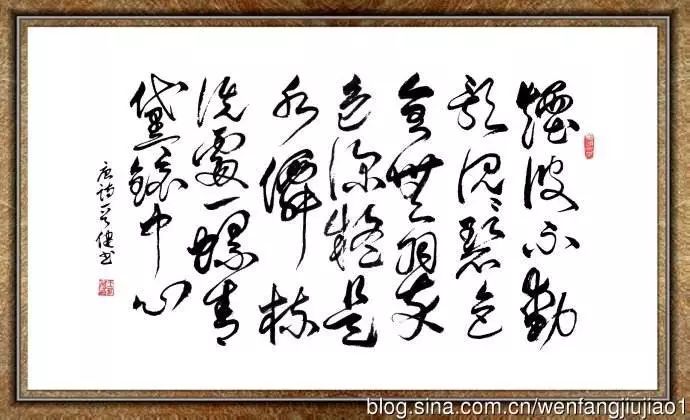 煙波不動
影沉〻碧色
全無翠
色深疑是
水僊梳
洗處一螺青
黛鏡中心
唐詩一首健书
blog.sina.com.cn/wenfangjiujiao1